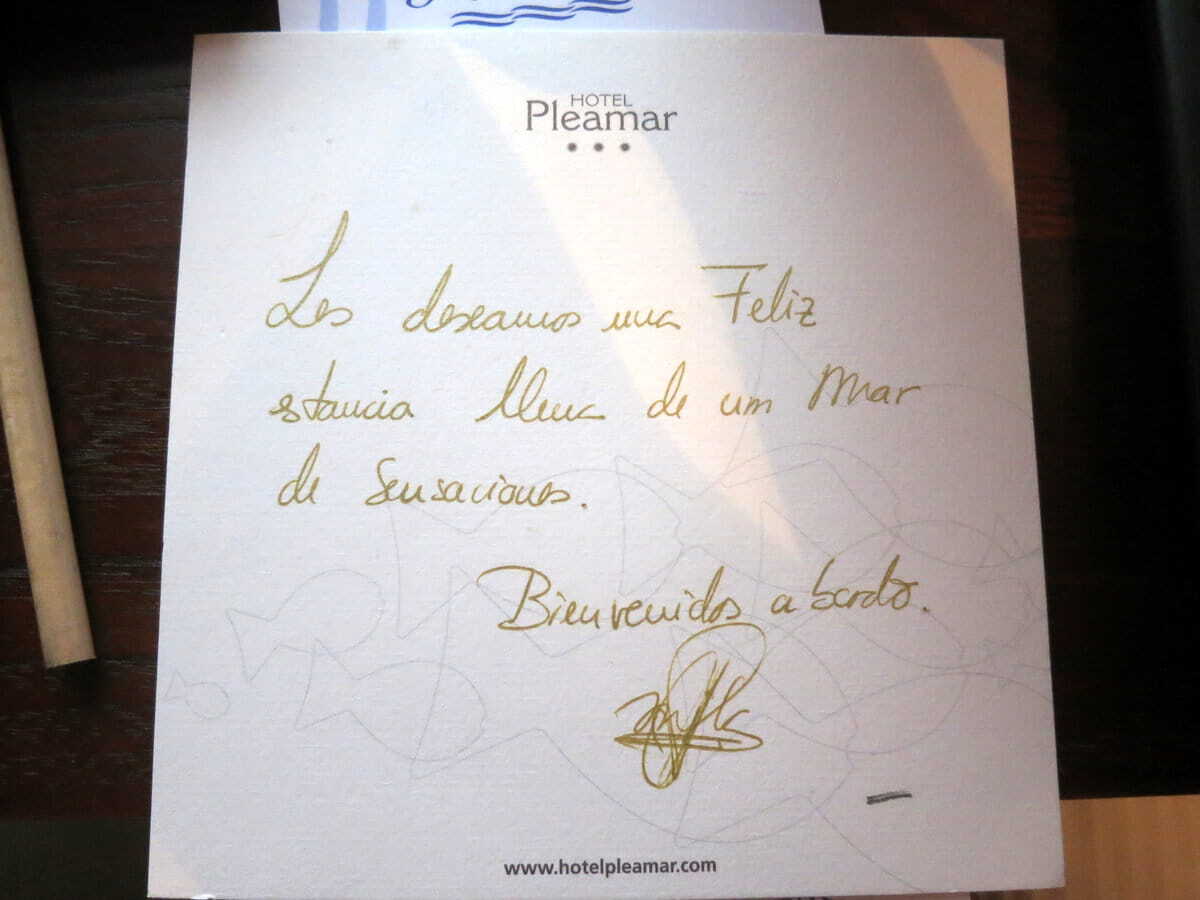 HOTEL
Pleamar
Les deseamos una Feliz
estancia llena de um Mar
de Sensaciones.
Bienvenidos a bordo.
www.hotelpleamar.com